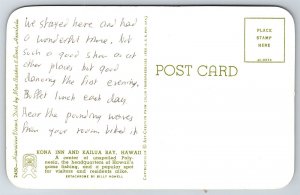 We stayed here and had
a wonderful time. Not
such a good show as at
other places but good
dancing the first evening.
Buffet lunch each day
Hear the pounding waves
from your room liked it
POST CARD
PLACE
STAMP
HERE
KONA INN AND KAILUA BAY, HAWAII
A center of unspoiled Poly-
nesia, the headquarters of Hawaii's
game fishing, and a popular spot
for visitors and residents alike.
EKTACHROME BY BILLY HOWELL